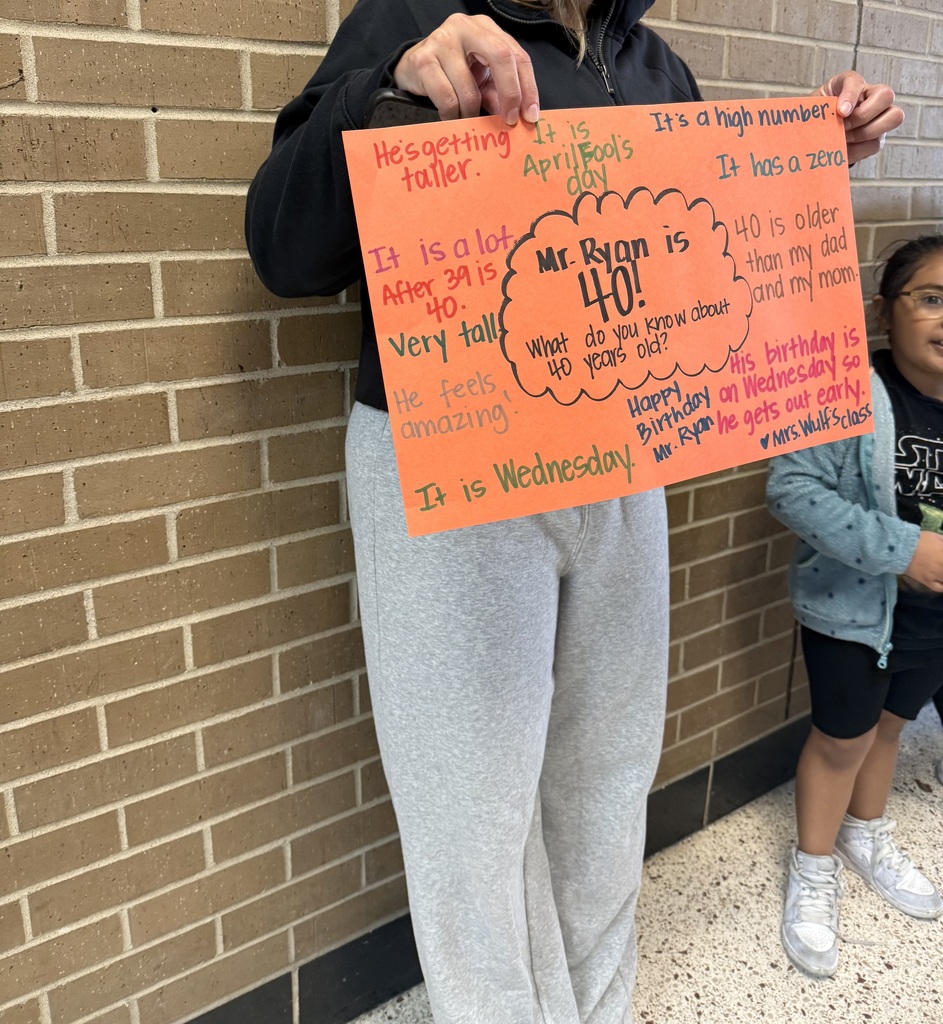 He's getting
taller.
It is
April Fool's
day
It's a high number.
It has a zero.
It is a lot.
After 39 is
40.
Very tall!
He feels
amazing!
It is Wednesday.
Mr. Ryan is
40!
What do you know about
40 years old?
40 is older
than my dad
and my mom.
His birthday is
on Wednesday so
he gets out early.
Happy
Birthday
Mr. Ryan
♥ Mrs. Wulf's class
ST
WA